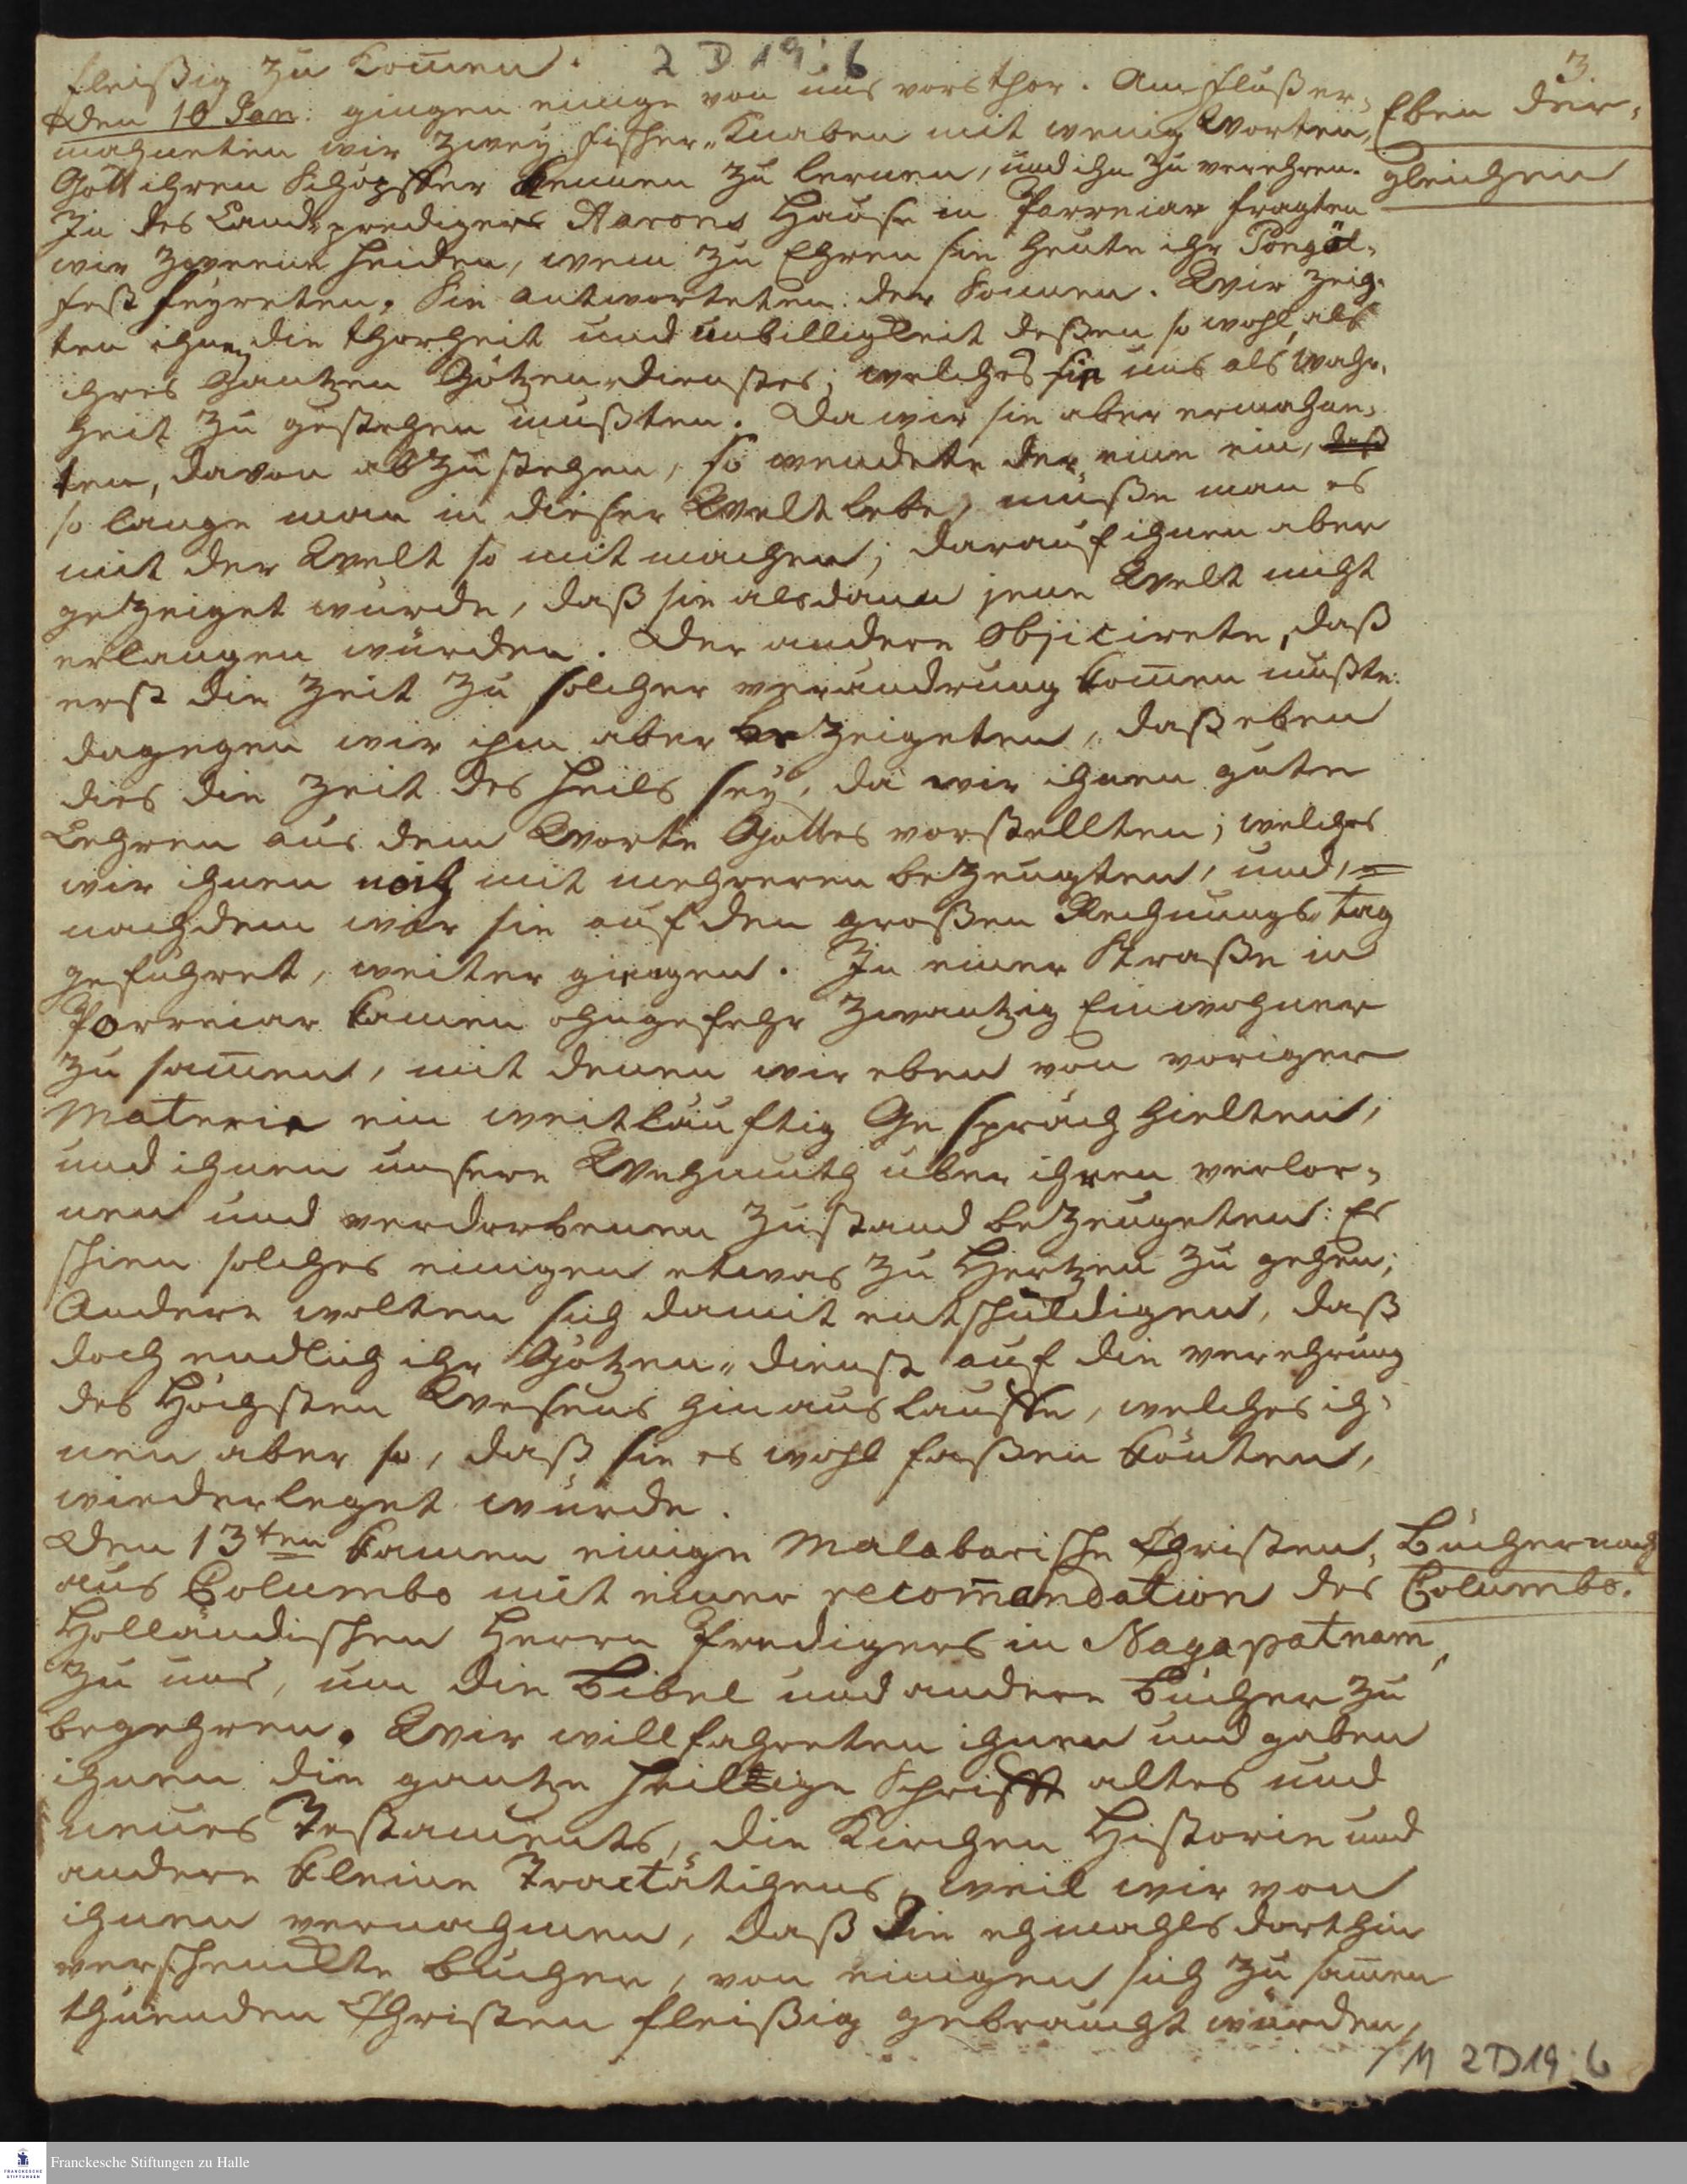 2 D 19:6
3.
fleißig zu kom̄en.
Den 10 Jan: gingen einige von uns vors Thor. Am Fluß er-
mahneten wir zwey Fischer-Knaben mit wenig Worten,
Gott ihren Schöpffer kennen zu lernen, und ihn zu verehren.
Eben der-
gleichen
In des Landpredigers Aarons Hause in Porreiar fragten
wir zweene Heiden, wem zu Ehren sie heute ihr Pongöl-
fest feyreten. Sie antworteten: der Sonnen. Wir zeig-
ten ihnen die Thorheit und Unbilligkeit deßen so wohl, als
ihres gantzen Götzen-dienstes; welches sie uns als Wahr-
heit zu gestehen mußten. Da wir sie aber ermahne-
ten, davon abzustehen, so wendete der eine ein, daß
so lange man in dieser Welt lebe, müße man es
mit der Welt so mit machen; darauf ihnen aber
gezeiget wurde, daß sie alsdann jene Welt nicht
erlangen würden. Der andere objicirete, daß
erst die Zeit zu solcher verändrung kom̄en müßte.
dagegen wir ihm aber bezeigeten, daß eben
dies die Zeit des Heils sey, da wir ihnen gute
Lehren aus dem Worte Gottes vorstellten; welches
wir ihnen noch mit mehreren bezeugten, und,
nachdem wir sie auf den großen Rechnungs-tag
geführet, weiter gingen. In einer Straße in
Porreiar kamen ohngefehr zwantzig Einwohner
zu sam̄en, mit denen wir eben von voriger
Materie ein weitläuftig Gespräch hielten,
und ihnen unsere Wehmuth über ihren verlor-
nen und verdorbenen Zustand bezeugeten: Es
schien solches einigen etwas zu Hertzen zu gehen;
Andere wolten sich damit entschuldigen, daß
doch endlich ihr Götzen-dienst auf die verehrung
des Höchsten Wesens hinaus lauffe, welches ih-
nen aber so, daß sie es wohl faßen könten,
wiederleget wurde.
Den 13ten kamen einige Malabarische Christen,
aus Columbo mit einer recom̄andation des
Bücher nach
Columbo.
Holländischen Herrn Predigers in Nagapatnam,
zu uns, um die Bibel und andere Bücher zu
begehren. Wir willfahreten ihnen und gaben
ihnen die gantze heilige Schrifft altes und
neues Testaments, die Kirchen Historie und
andere kleine Tractätigens, weil wir von
ihnen vernahmen, daß die ehmahls dorthin
verschenckte bücher, von einigen sich zu sam̄en
thuenden Christen fleißig gebraucht würden,
/M 2D19:6
Franckesche Stiftungen zu Halle